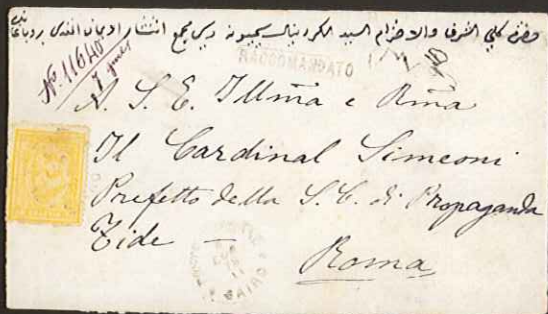 حضرة كلي الشرف والاحترام السيد الكردينال سيميوني رئيس مجمع انتشار الايمان المقدس
No. 11640
RACCOMANDATO
A S. E. Illma e Rma
Il Cardinal Simeoni
Prefetto della S. C. di Propaganda
Fide —
Roma
CAIRO